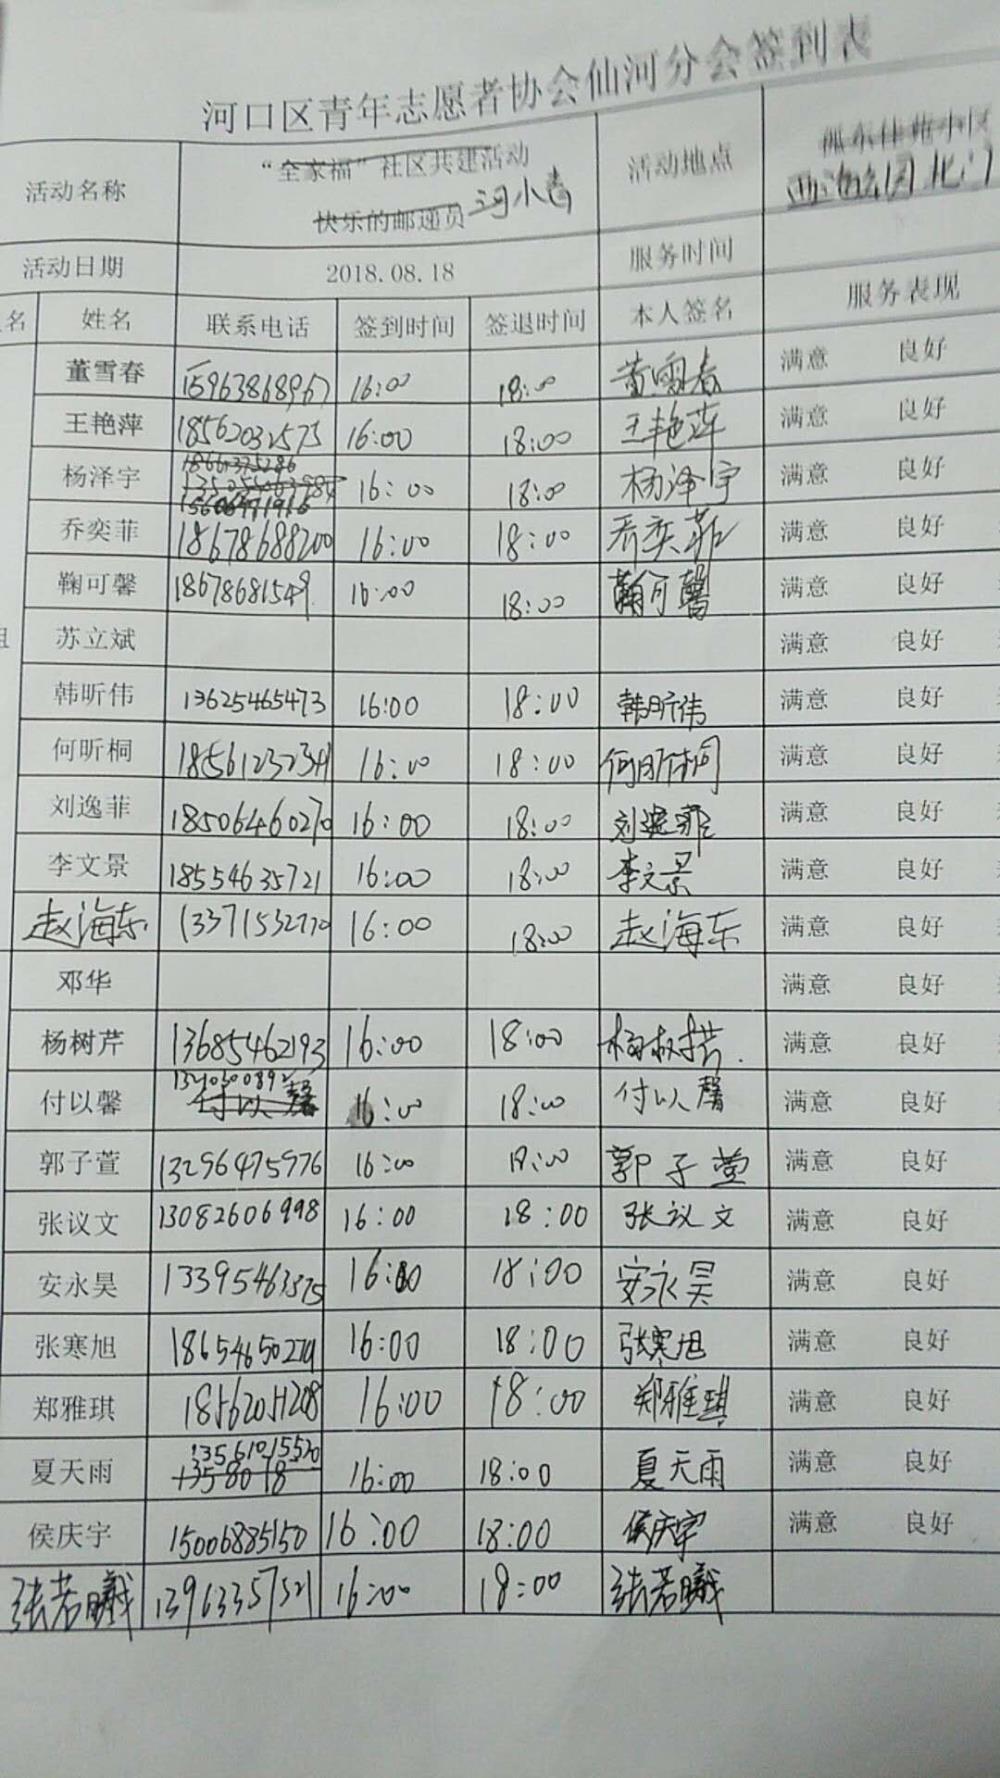 河口区青年志愿者协会仙河分会签到表
活动名称 “全家福”社区共建活动 快乐的邮递员 河小青 活动地点 孤东佳苑小区
西 公园北门
活动日期 2018.08.18 服务时间
名 姓名 联系电话 签到时间 签退时间 本人签名 服务表现
董雪春 15963868967 16:00 18:00 董雪春 满意 良好
王艳萍 18562032575 16:00 18:00 王艳萍 满意 良好
杨泽宇 15606491916 16:00 18:00 杨泽宇 满意 良好
乔奕菲 18678688200 16:00 18:00 乔奕菲 满意 良好
鞠可馨 18678681549 16:00 18:00 鞠可馨 满意 良好
组 苏立斌 满意 良好
韩昕伟 13625465473 16:00 18:00 韩昕伟 满意 良好
何昕桐 18561232341 16:00 18:00 何昕桐 满意 良好
刘逸菲 18506460270 16:00 18:00 刘逸菲 满意 良好
李文景 18554635721 16:00 18:00 李文景 满意 良好
赵海东 13371532770 16:00 18:00 赵海东 满意 良好
邓华 满意 良好
杨树芹 13685462193 16:00 18:00 杨树芹 满意 良好
付以馨 付以馨 16:00 18:00 付以馨 满意 良好
郭子萱 13296475976 16:00 18:00 郭子萱 满意 良好
张议文 13082606998 16:00 18:00 张议文 满意 良好
安永昊 13395463575 16:00 18:00 安永昊 满意 良好
张寒旭 18654650279 16:00 18:00 张寒旭 满意 良好
郑雅琪 18562051208 16:00 18:00 郑雅琪 满意 良好
夏天雨 13561015520 1358018 16:00 18:00 夏天雨 满意 良好
侯庆宇 15006885150 16:00 18:00 侯庆宇 满意 良好
张若曦 13963357521 16:00 18:00 张若曦